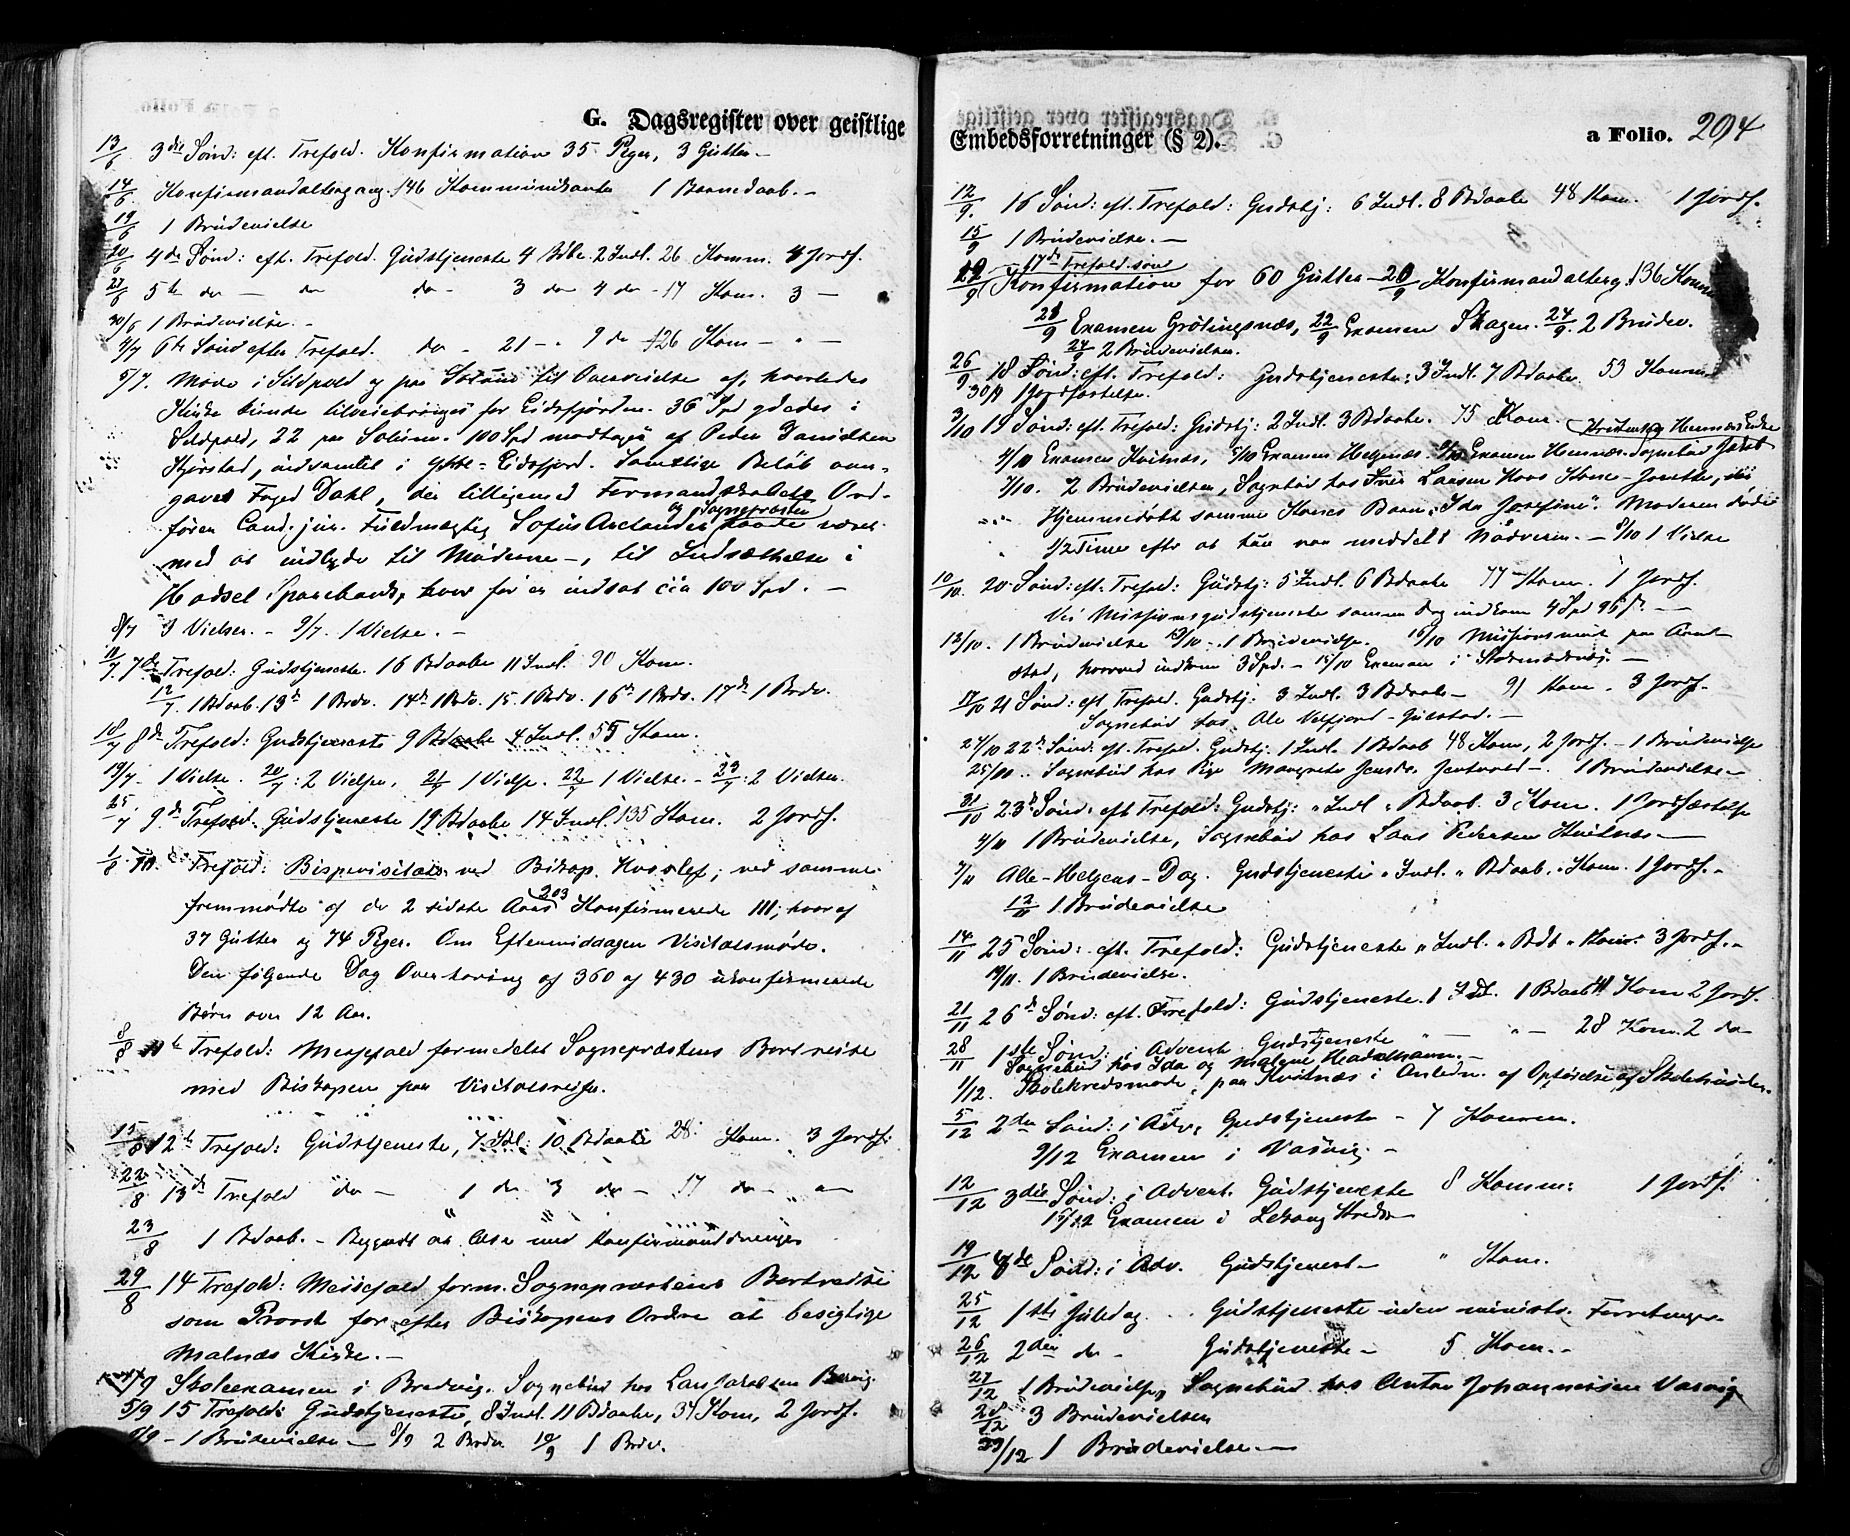 G. Dagsregister over geistlige
13/6 3die Sønd: eft. Trefold. Konfirmation 35 Piger, 3 Gutter –
14/6 Konfirmandaltergang. 146 Kommunikanter 1 Barnedaab. –
19/6 1 Brudevielse
20/6 4de Sønd: eft. Trefold. Gudstjeneste 4 Bdbe. 2 Indl. 26 Komm. 4 Jordf.
27/6 5te do – do do – 3 do 4 do – 17 Kom. 3 –
30/6 1 Brudevielse. –
4/7 6te Sønd efter Trefold. do – 21 – " 9 do 126 Kom – " –
5/7. Møde i Sildpold og paa Solum til Overveielse af, hvorledes
Kirke kunde tilveiebringes for Eidsfjorden. 36 Spd ydedes i
Sildpold, 22 paa Solum. 100 Spd modtoges af Peder Danielsen
Kjørstad, indsamlet i Eidsfjord. Samtlige Beløb over-
gaves Foged Dahl, der tilligemed Formandskabets Ord-
og Sognepræsten
fører Cand. jur. Fuldmægtig Sofus Arctander havde været
med at indbyde til Møderne –, til Indsættelse i
Hadsel Sparebank, hvor før er indsat cia 100 Spd. –
8/7 3 Vielser. – 9/7. 1 Vielse. –
11/7. 7de Trefold: Gudstjeneste. 16 Bdaabe 11 Indl. 90 Kom.
12/7. 1 Bdaab. 13d 1 Brdv. 14d 1 Brdv. 15. 1 Brdv. 16d 1 Brdv. 17d 1 Brdv.
18/7 8de Trefold: Gudstjeneste 9 Bdaabe 4 Indl. 55 Kom.
19/7 – 1 Vielse. 20/7: 2 Vielser, 21/7 1 Vielse. 22/7 1 Vielse. – 23/7: 2 Vielser.
25/7 9de Trefold. Gudstjeneste 19 Bdaabe 14 Indl. 135 Kom. 2 Jordf.
1/8 10. Trefold: Bispevisitats ved Biskop. Hvoslef; ved samme
203
fremmødte af de 2 sidste Aars Konfirmerede 111; hvoraf
37 Gutter og 74 Piger. Om Eftermiddagen Visitatsmøde.
Den følgende Dag Overhøring af 360 af 430 ukonfirmerede
Børn over 12 Aar.
8/8 11te Trefold: Messefald formedelst Sognepræstens Bortreise
med Biskopen paa Visitatsreise.
15/8 12te Trefold: Gudstjeneste, 7 Idl: 10 Bdaabe 28 Kom. 3 Jordf.
22/8 13de Trefold do – 1 do 3 do – 17 do – " a –
23/8 1 Bdaab. – Begyndt at læse med Konfirmanddrenge
29/8 14 Trefold: Messefald form. Sognepræstens Bortreise
som Provst for efter Biskopens Ordre at besigtige
Malnæs Kirke. –
/9 Skoleexamen i Bredvig. Sognebud hos Lars Jakobsen
5/9 15 Trefold: Gudstjeneste, 8 Indl. 11 Bdaabe, 37 Kom, 2 Jordf.
/9 – 1 Brudevielse – 8/9 2 Brdv 10/9 1 Brdv.
Embedsforretninger (§ 2). a Folio. 294
12/9. 16 Sønd: eft. Trefold: Gudstj: 6 Indl. 8 Bdaabe 48 Kom. 1 Jordf.
15/9 1 Brudevielse. –
17de Trefold. sønd
19/9 Konfirmation for 60 Gutter – 20/9 Konfirmandalterg. 136 Komm
21/9 Examen Grøtingsnæs, 22/9 Examen Skagen. 24/9. 2 Brudev.
24/9 2 Brudevielser.
26/9 18 Sønd: eft. Trefold: Gudstjeneste: 3 Indl. 7 Bdaabe 53 Komm
30/9 1 Jordfæstelse.
3/10 19 Sønd: eft. Trefold: Gudstj: 2 Indl. 3 Bdaabe. 75 Kom.
4/10 Examen Kvitnæs, 5/10 Examen Helgenæs 6/10 Examen Hemnæs. Sognebud
7/10. 2 Brudevielser, Sognebud hos Iver Larsen Haas Kone – Jonette,
– " – Hjemmedøbt samme Kones Barn "Ida Josefine". Moderen døde
" 1/2 Time efter at hun var meddelt Nadveren. – 8/10 1 Vielse
10/10. 20 Sønd: eft. Trefold: Gudstj: 5 Indl. 6 Bdaabe 77 Kom. 1 Jordf.
Ved Missionsgudstjeneste samme Dag indkom 4 Spd 96 s. – –
12/10. 1 Brudevielse 13/10. 1 Brudevielse. 15/10 Missionsmøde paa
stad, hvorved indkom 3 Spd. – 15/10 Examen i Stokmarknæs. –
17/10 21 Sønd: eft. Trefold. Gudstj: 3 Indl. 3 Bdaab – 91 Kom. 3 Jordf.
Sognebud hos Ole Gulstad. –
24/10 22d Sønd: eft. Trefold. Gudstj: 1 Indl. 1 Bdaab 48 Kom, 2 Jordf. – 1 Brudevielse
25/10. Sognebud hos Pige Margrete Jensd. – 1 Brudevielse –
31/10 23d Sønd: eft Trefold: Gudstj: " Indl " Bdaab. 3 Kom. 1 Jordfæstelse
4/11 1 Brudevielse, Sognebud hos Lars Pedersen Kvitnæs –
7/11 Alle-Helgens-Dag. Gudstjeneste " Indl. " Bdaab. " Kom. 1 Jordf. –
12/11 1 Brudevielse
14/11 25 Sønd: eft. Trefold: Gudstjeneste " Indl. " Bdb " Kom: 3 Jordf. –
19/11. 1 Brudevielse.
21/11 26de Sønd: eft. Trefold: Gudstjeneste. 1 Idl. 1 Bdaab 11 Kom 2 Jordf.
28/11 1ste Sønd: i Advent Gudstjeneste " – " – 28 Kom. 2 do
Sognebud hos Ida og Malene –
1/12. Skolekredsmøde, paa Kvitnæs i Anledn. af Opførelse af Skolehuset.
5/12 2den Sønd: i Adv, Gudstjeneste – 7 Komm.
9/12 Examen i Vasvig –
12/12 3die Sønd: i Advent. Gudstjeneste 8 Komm: 1 Jordf.
15/12 Examen i
19/12 4de Sønd: i Adv. Gudstjenest – " Kom.
25/12 1ste Juledag . . Gudstjeneste uden minist. Forretninger
26/12 2den do – Gudstjeneste – 5 Kom. –
27/12 1 Brudevielse, Sognebud hos Anton Johannessen Vasvig
28/12 3 Brudevielser
29/12 1 Brudevielse. –